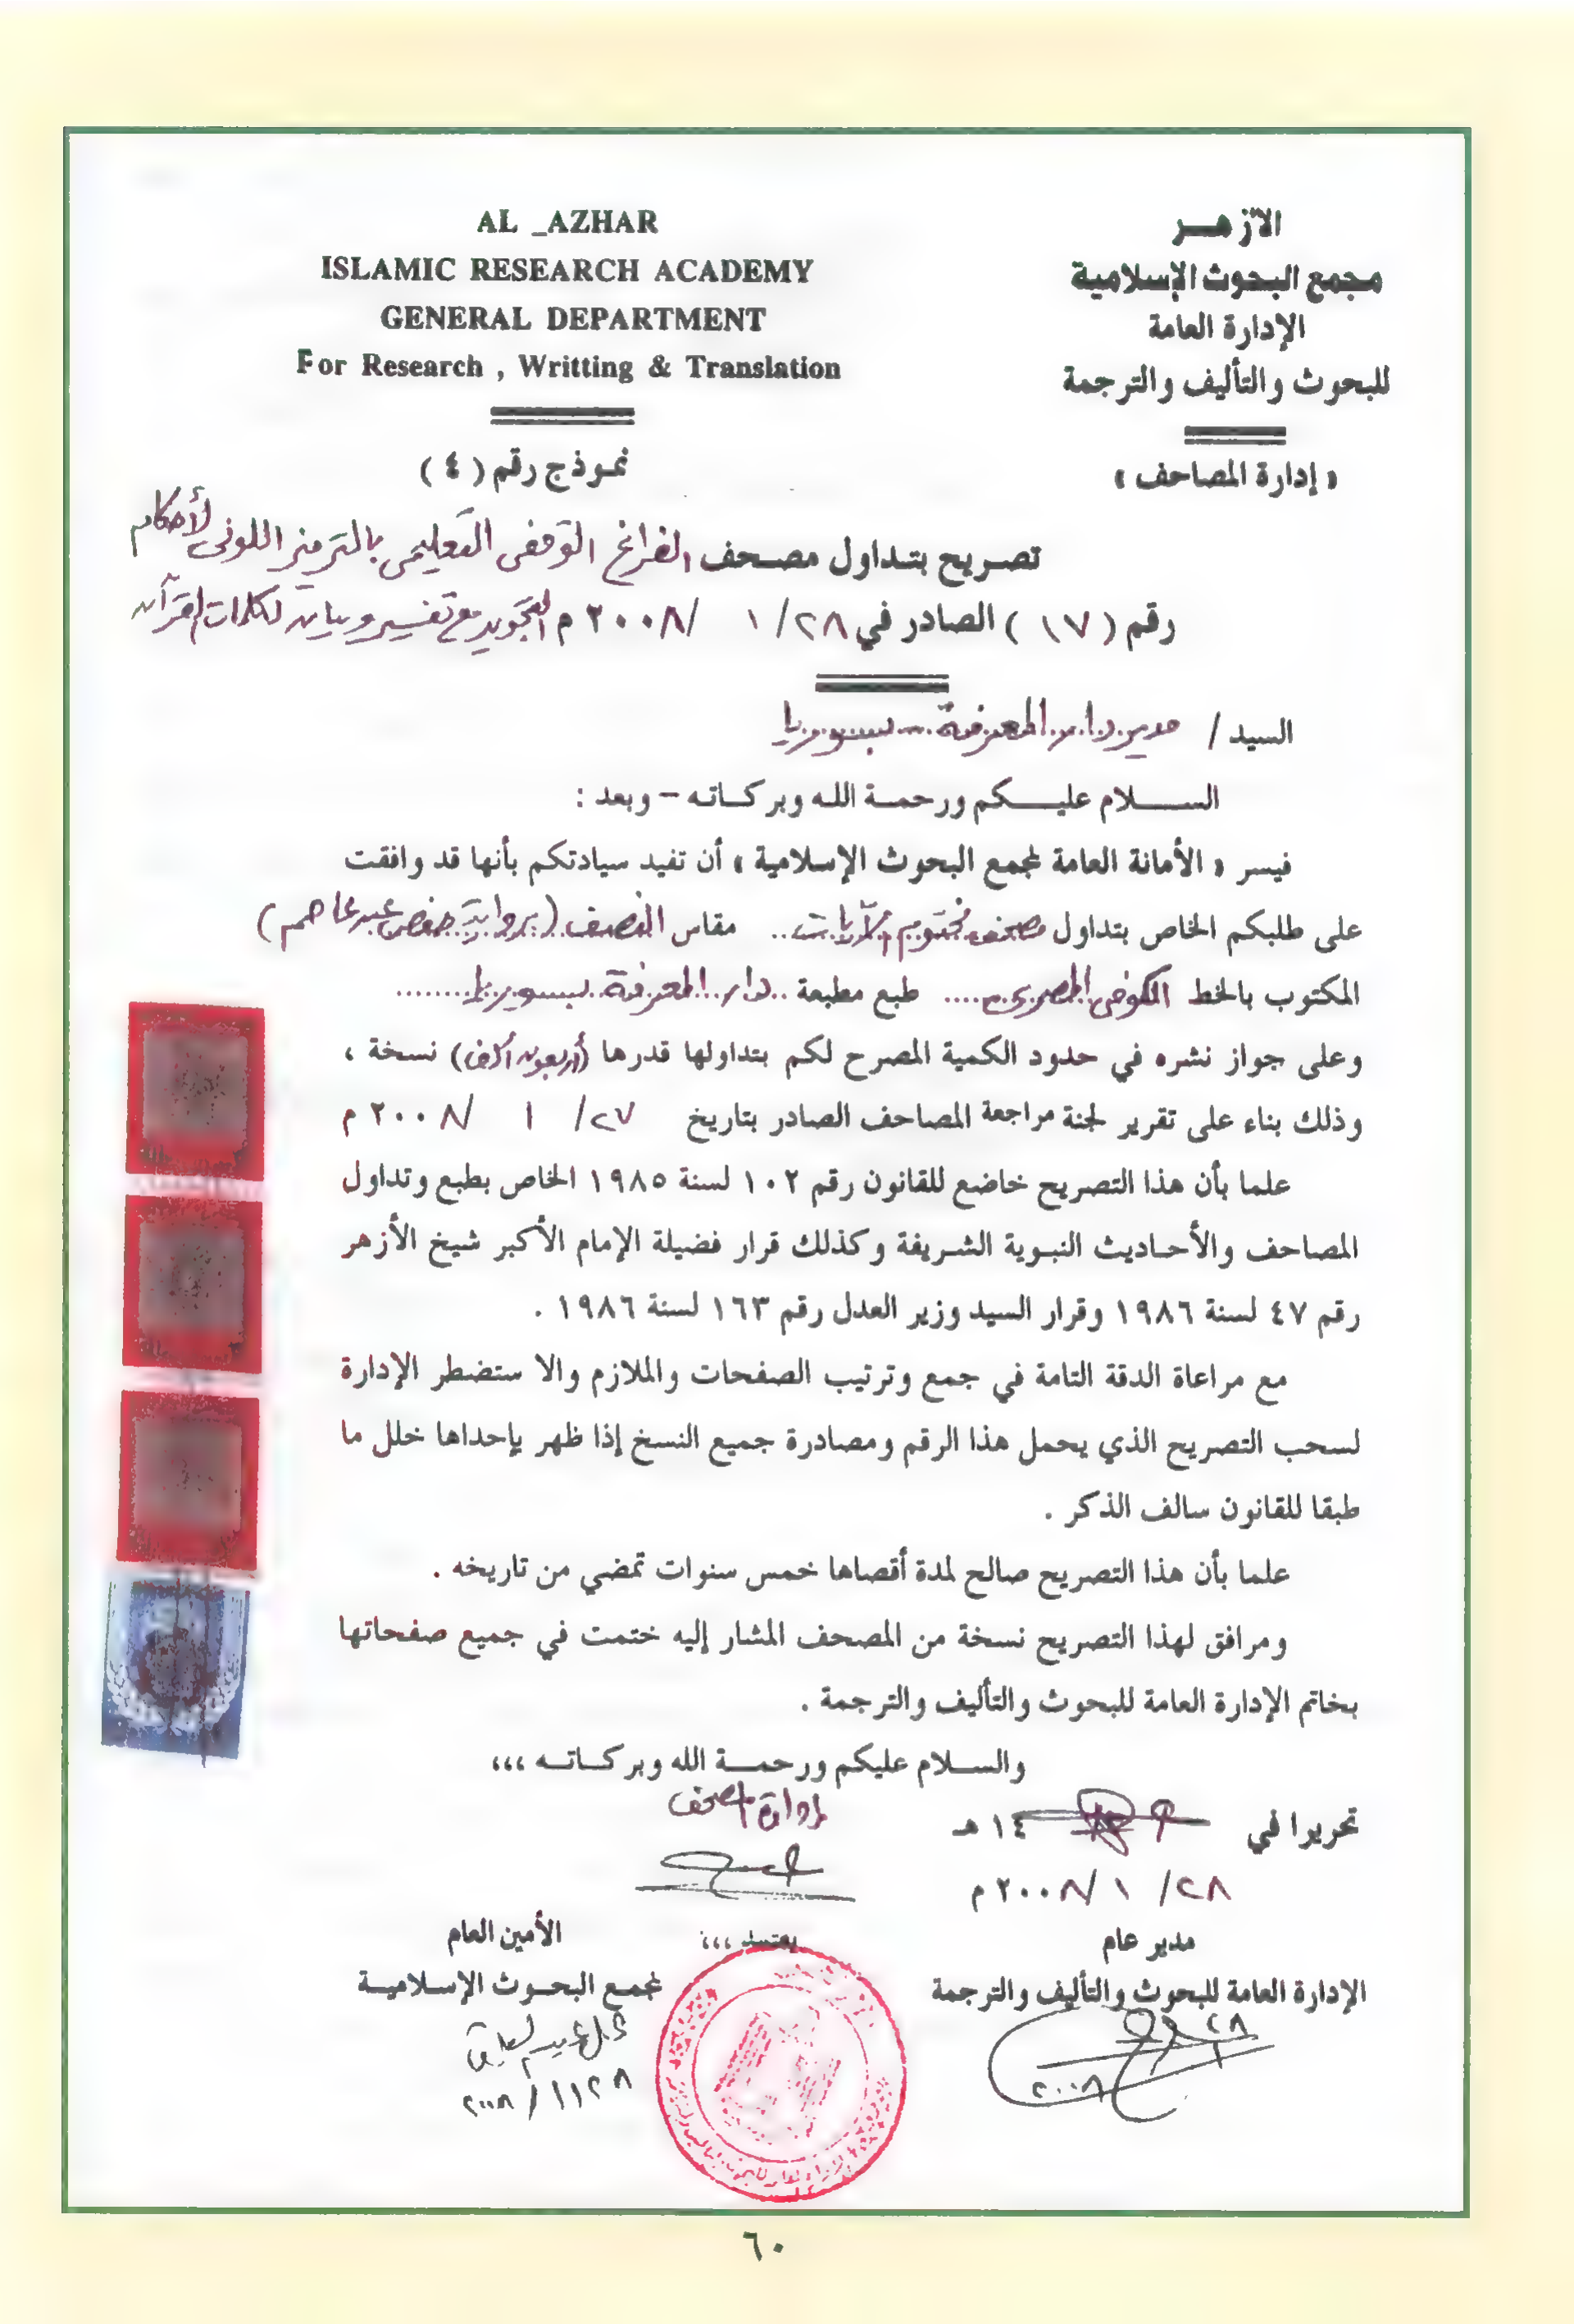 AL _AZHAR
ISLAMIC RESEARCH ACADEMY
GENERAL DEPARTMENT
For Research , Writting & Translation
الأزهــر
مجمع البحوث الإسلامية
الإدارة العامة
للبحوث والتأليف والترجمة
« إدارة المصاحف »
نموذج رقم ( ٤ )
تصريح بتداول مصحف الفراغ الوقفي التعليمي بالترميز اللوني لأحكام
رقم ( ١٧ ) الصادر في ٢٨ / ١ / ٢٠٠٨ م التجويد مع تفسير وبيان لكلمات القرآن
السيد / مدير دار المعرفة - بسوريا
الســـلام عليـــكم ورحمـة اللـه وبركـاتـه – وبعد :
فيسر « الأمانة العامة لمجمع البحوث الإسلامية » أن تفيد سيادتكم بأنها قد وافقت
على طلبكم الخاص بتداول مصحف مختوم الآيات .. مقاس النصف ( برواية حفص عن عاصم )
المكتوب بالخط الكوفي المصري .... طبع مطبعة .. دار المعرفة بسوريا ........
وعلى جواز نشره في حدود الكمية المصرح لكم بتداولها قدرها ( أربعون ألف ) نسخة ،
وذلك بناء على تقرير لجنة مراجعة المصاحف الصادر بتاريخ ٢٧ / ١ / ٢٠٠٨ م
علما بأن هذا التصريح خاضع للقانون رقم ١٠٢ لسنة ١٩٨٥ الخاص بطبع وتداول
المصاحف والأحاديث النبوية الشريفة وكذلك قرار فضيلة الإمام الأكبر شيخ الأزهر
رقم ٤٧ لسنة ١٩٨٦ وقرار السيد وزير العدل رقم ١٦٣ لسنة ١٩٨٦ .
مع مراعاة الدقة التامة في جمع وترتيب الصفحات والملازم والا ستضطر الإدارة
لسحب التصريح الذي يحمل هذا الرقم ومصادرة جميع النسخ إذا ظهر بإحداها خلل ما
طبقا للقانون سالف الذكر .
علما بأن هذا التصريح صالح لمدة أقصاها خمس سنوات تمضي من تاريخه .
ومرافق لهذا التصريح نسخة من المصحف المشار إليه ختمت في جميع صفحاتها
بخاتم الإدارة العامة للبحوث والتأليف والترجمة .
والســلام عليكم ورحمــة الله وبركـاتـه ،،،
إدارة المصحف
تحريرا في ١٤ هـ
٢٨ / ١ / ٢٠٠٨ م
مدير عام
الإدارة العامة للبحوث والتأليف والترجمة
٢٨
١
٢٠٠٨
يعتمد ،،،
الأمين العام
لمجمع البحوث الإسلامية
٢٨ / ١ / ٢٠٠٨
٦٠